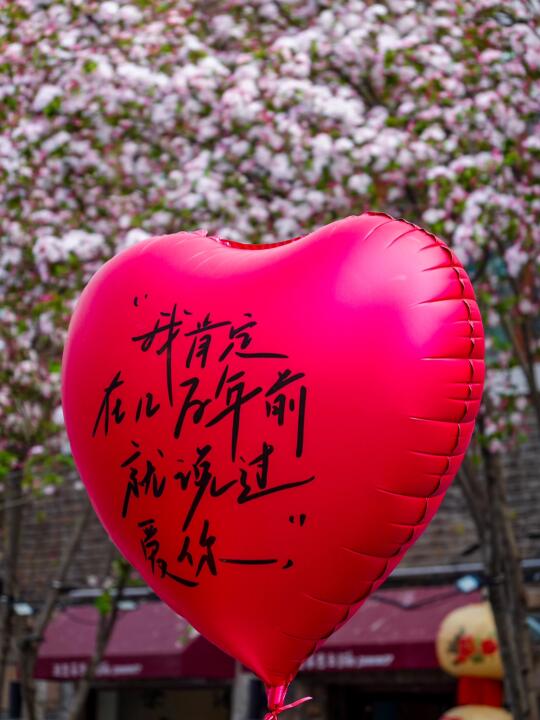 “我肯定
在几万年前
就说过
爱你”，